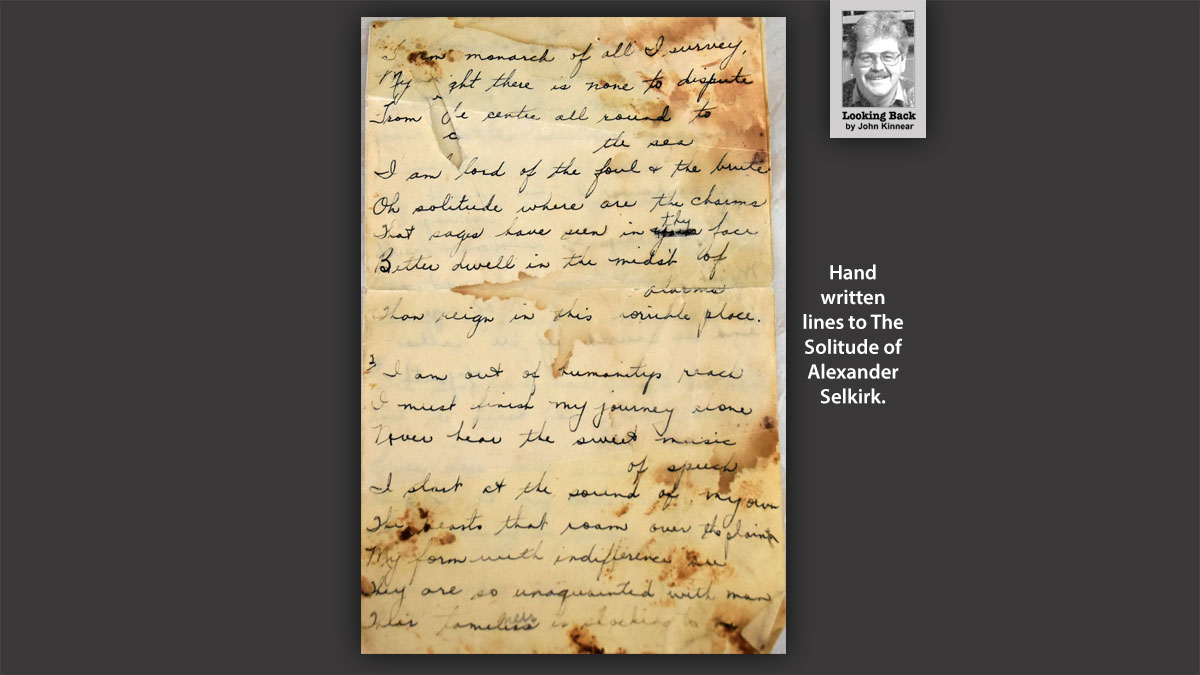 I am monarch of all I survey,
My right there is none to dispute
From the centre all round to
the sea
I am lord of the foul & the brute
Oh solitude where are the charms
That sages have seen in thy face
Better dwell in the midst of
alarms
Than reign in this horrible place.
2
I am out of humanitys reach
I must finish my journey alone
Never hear the sweet music
of speech
I start at the sound of my own
The beasts that roam over the plain
My form with indifference see
They are so unaquainted with man
Their tameness is shocking to me
Looking Back
by John Kinnear
Hand
written
lines to The
Solitude of
Alexander
Selkirk.